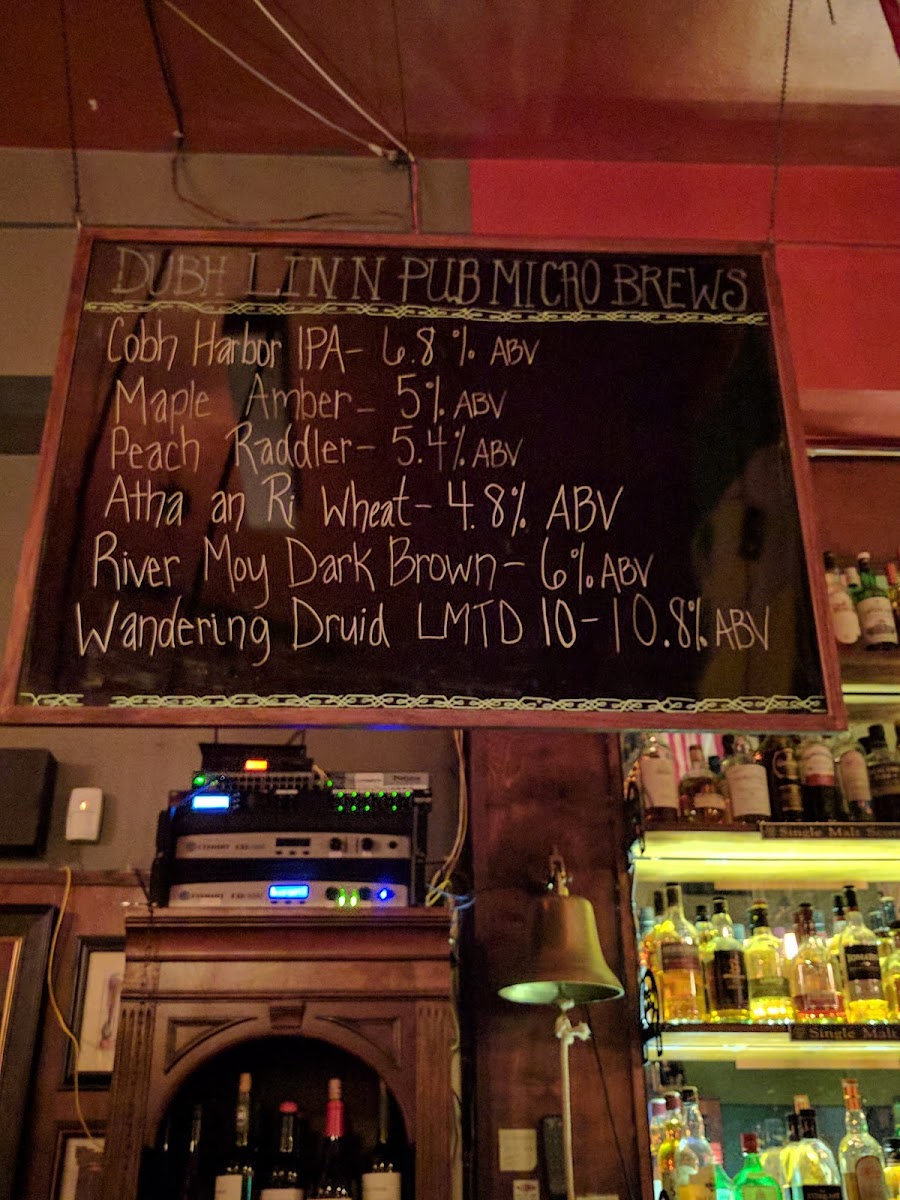 DUBH LINN PUB MICRO BREWS
Cobh Harbor IPA- 6.8 % ABV
Maple Amber- 5% ABV
Peach Raddler- 5.4% ABV
Atha an Ri Wheat- 4.8% ABV
River Moy Dark Brown- 6% ABV
Wandering Druid LMTD 10-10.8% ABV
CROWN
Single Malt
Single Malt